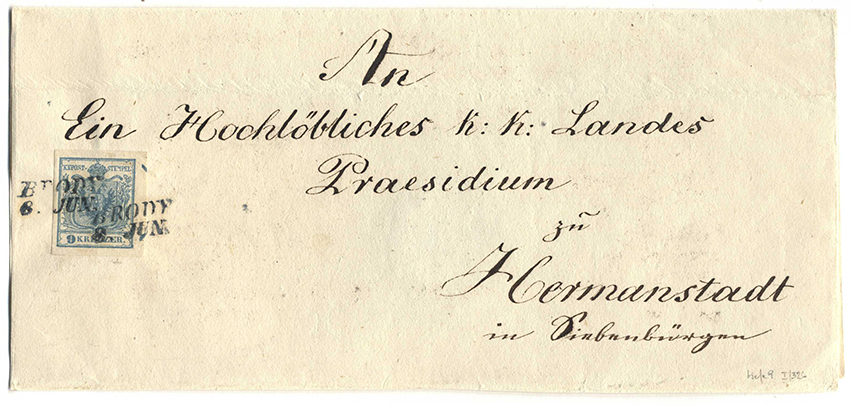 An
Ein Hochlöbliches K: K: Landes
Praesidium
zu
Hermanstadt
in Siebenbürgen
KKPOST-STEMPEL
BRODY
6. JUN.
BRODY
JUN.
9 KREUZER.